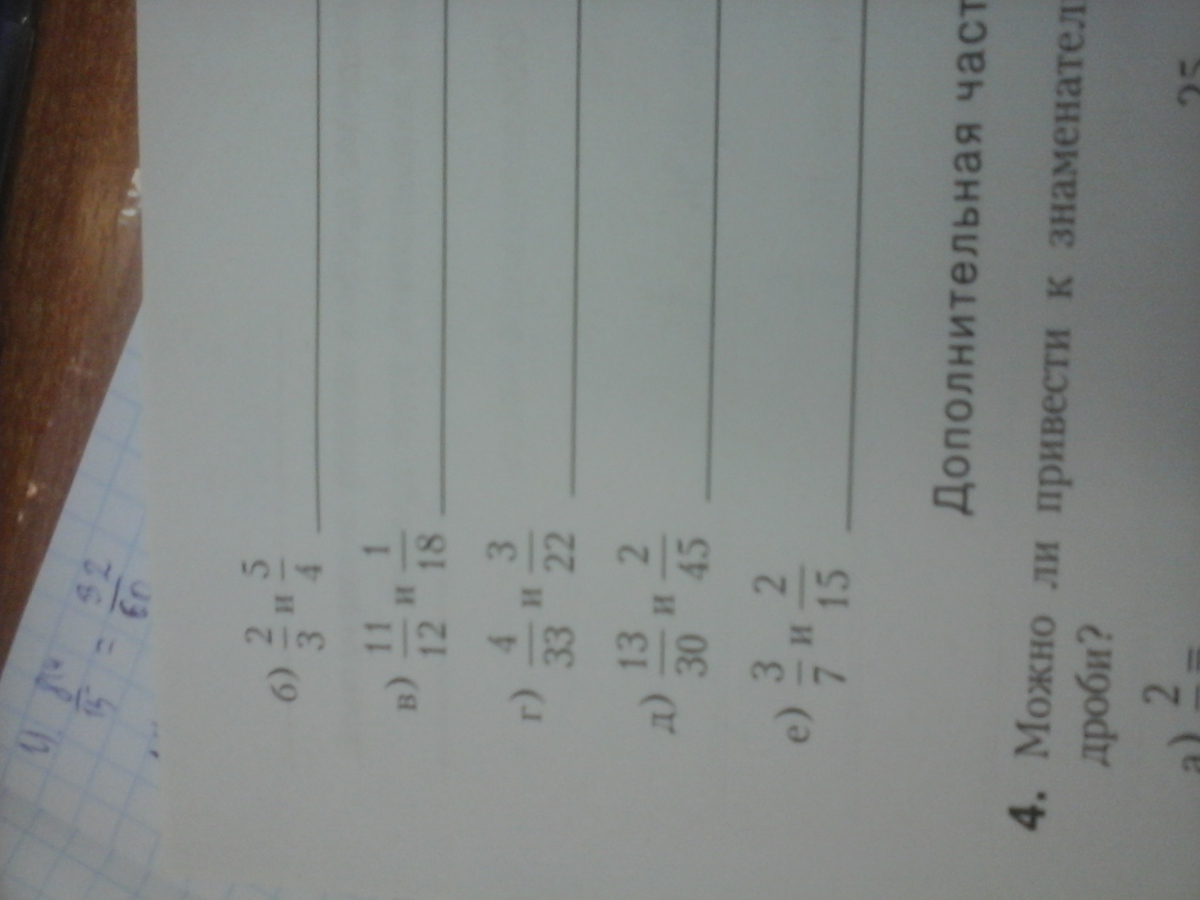 б) 2/3 и 5/4
в) 11/12 и 1/18
г) 4/33 и 3/22
д) 13/30 и 2/45
е) 3/7 и 2/15
Дополнительная част
4. Можно ли привести к знаменател
дроби?
а) 2 =
25